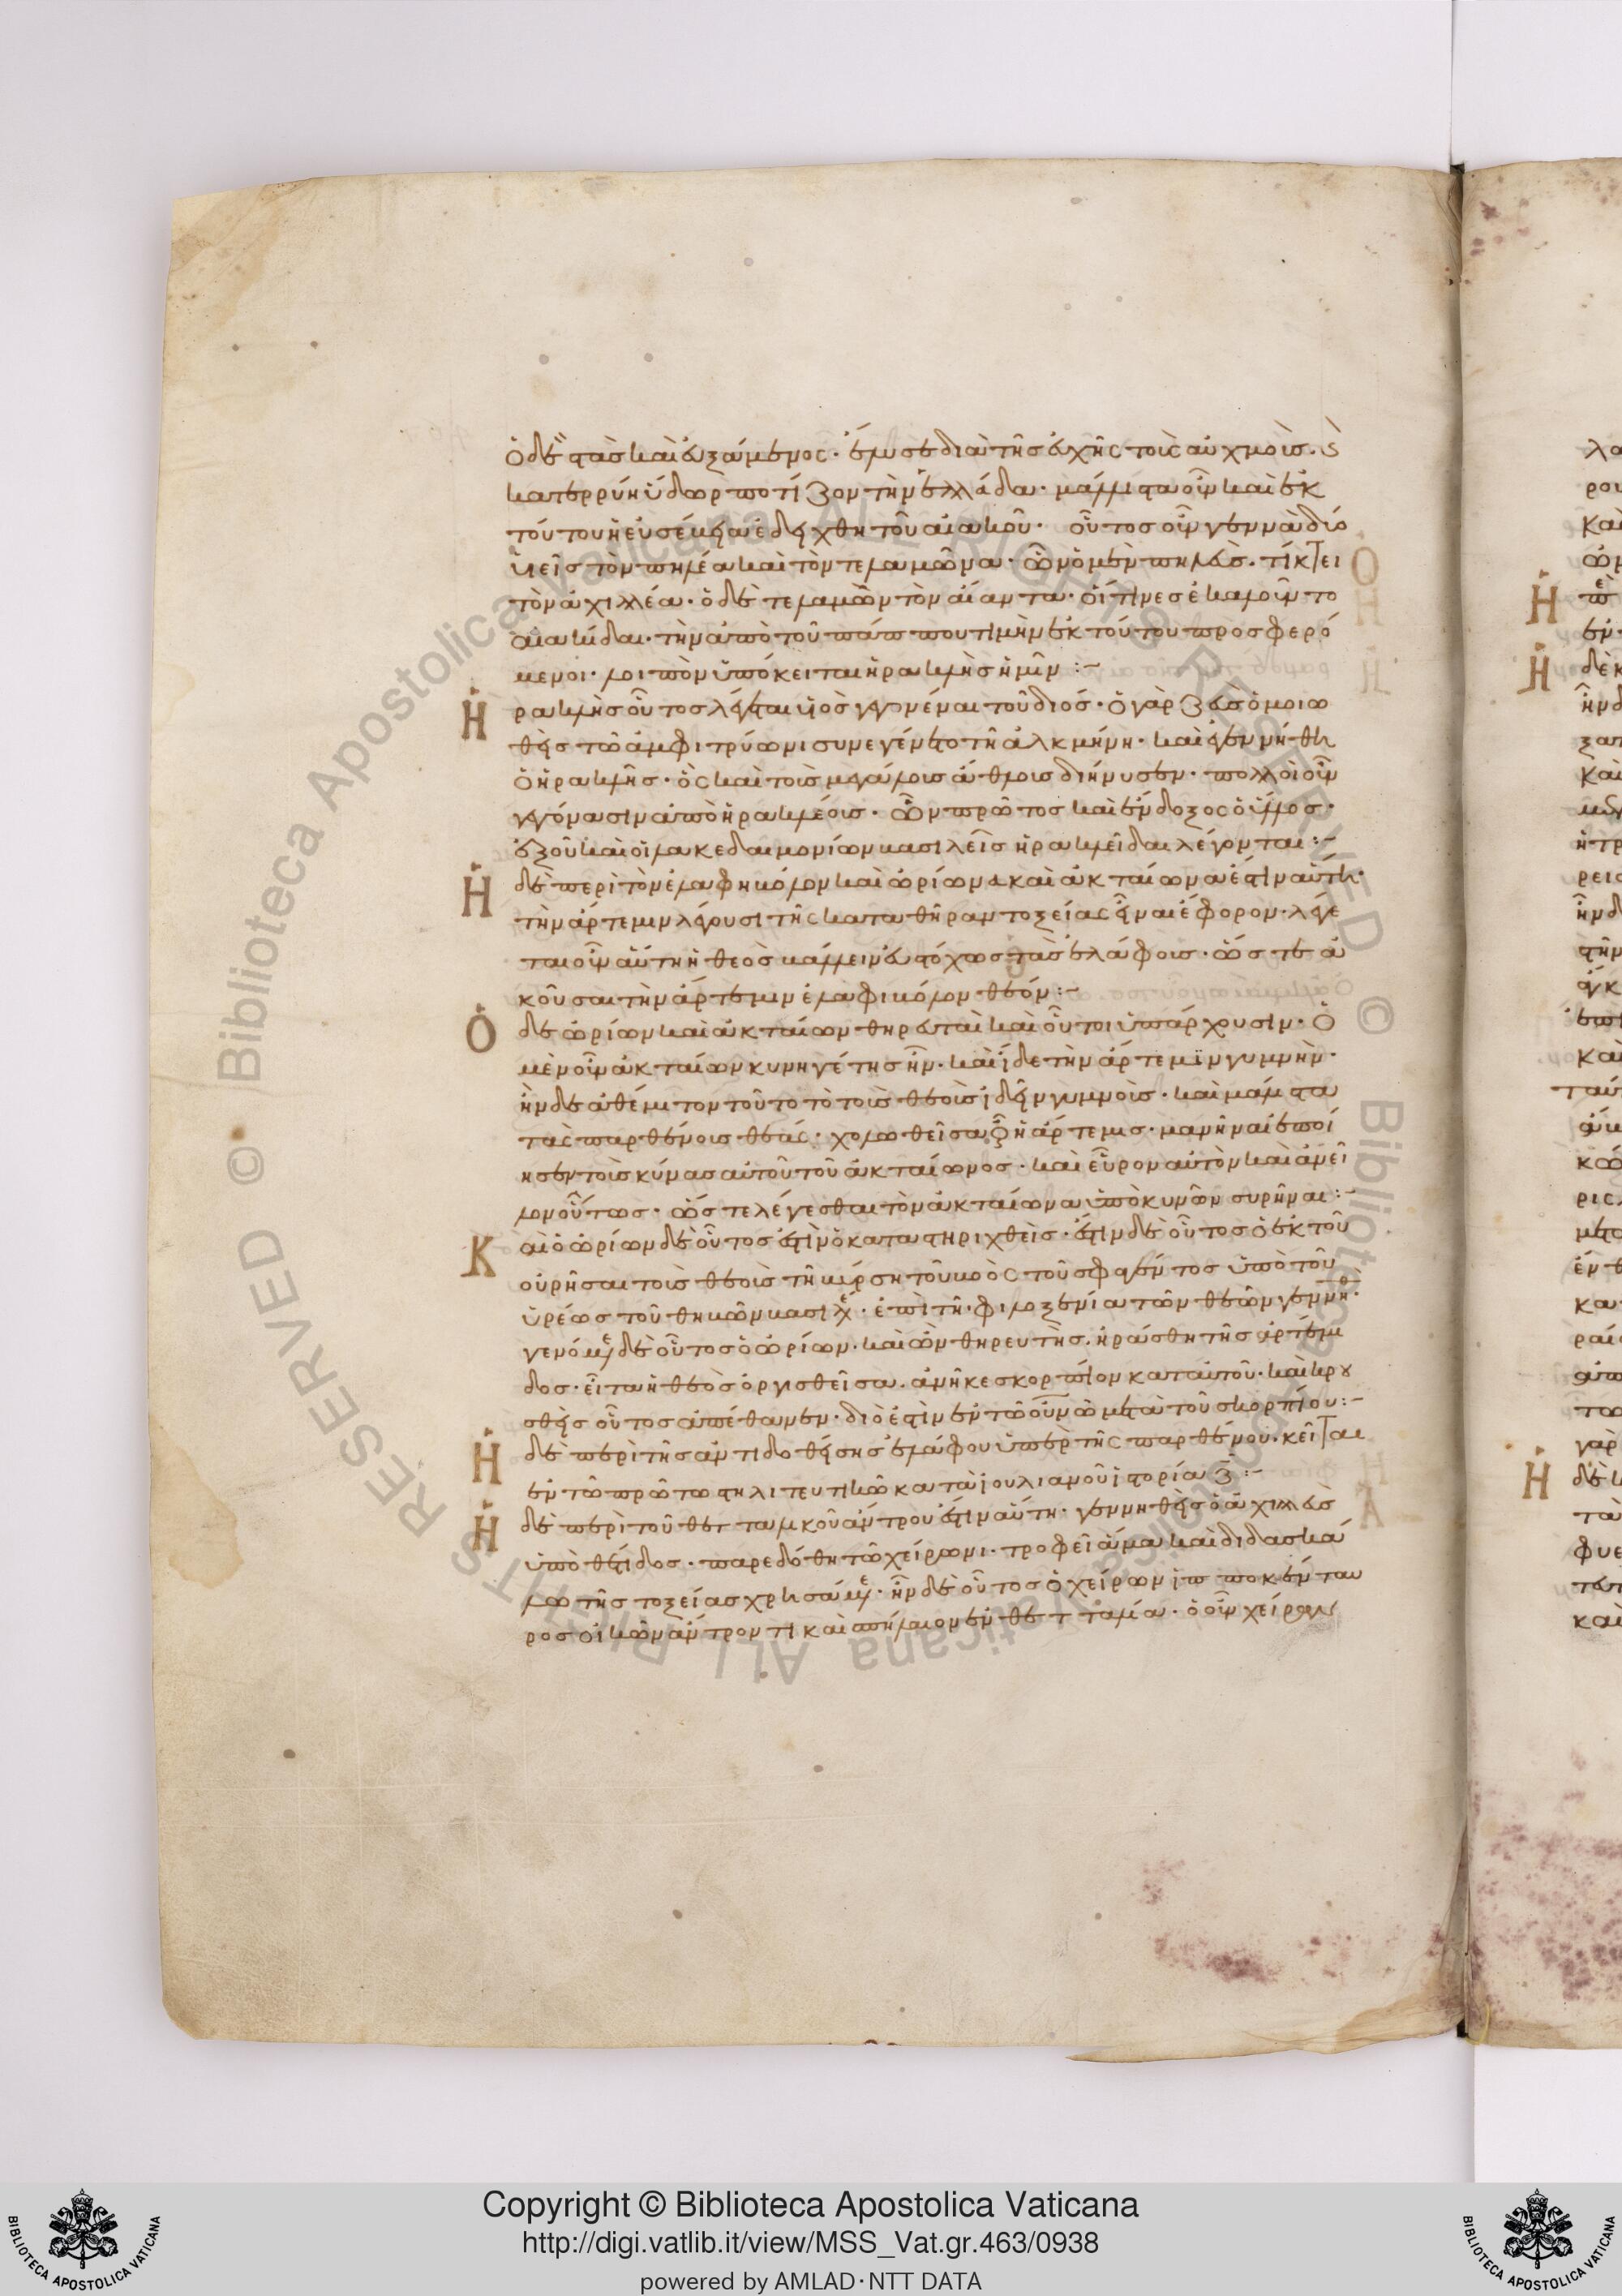 ὁ δὲ στὰς καὶ εὐξάμενος· ἔλυσε διὰ τῆς εὐχῆς τοὺς αὐχμούς. καὶ
κατερρύη ὕδωρ ποτίζον τὴν ἑλλάδα· μάλλιστα οὖν καὶ ἐκ
τούτου ἡ εὐσέβεια ἐδείχθη τοῦ αἰακοῦ· οὗτος οὖν γεννᾶ δύο
υἱεῖς τὸν πηλέα καὶ τὸν τελαμῶνα· ὧν ὁ μὲν πηλεὺς. τίκτει
τὸν ἀχιλλέα· ὁ δὲ τελαμὼν τὸν αἴαντα· οἵτινες ἐκαλοῦντο
αἰακίδαι· τὴν ἀπὸ τοῦ πάππου τιμὴν ἐκ τούτου προσφερό
μενοι· λοιπὸν ὑπόκειται ἡρακλῆς ἡμῖν :~
Ἡ
ρακλῆς οὗτος λέγεται υἱὸς γεγονέναι τοῦ διός· ὁ γὰρ ζεὺς ὁμοιω
θεὶς τῶ ἀμφιτρύωνι συνεγένετο τῆ ἀλκμήνη· καὶ ἐγεννήθη
ὁ ἡρακλῆς· ὃς καὶ τοὺς μεγάλους ἄθλους διήνυσεν· πολλοὶ οὖν
γεγόνασιν ἀπὸ ἡρακλέους· ὧν πρῶτος καὶ ἔνδοξος ὁ ὕλλος·
ἐξ οὗ καὶ οἱ λακεδαιμονίων βασιλεῖς ἡρακλεῖδαι λέγονται :~
Ἡ
δὲ περὶ τὸν ἐλαφηβόλον καὶ ὠρίωνα καὶ ἀκταίωνα ἐστὶν αὕτη·
τὴν ἄρτεμιν λέγουσι τῆς κατὰ θῆραν τοξείας εἶναι ἔφορον· λέγε
ται οὖν αὕτη ἡ θεὸς βάλλειν εὐστόχως τὰς ἐλάφους· ὥστε ἀ
κοῦσαι τὴν ἄρτεμιν ἐλαφιβόλον θεόν :~
Ὁ
δὲ ὠρίων καὶ ἀκταίων θηρευταὶ καὶ οὗτοι ὑπάρχουσιν· ὁ
μὲν οὖν ἀκταίων κυνηγέτης ἦν· καὶ ἴδε τὴν ἄρτεμιν γυμνὴν·
ἦν δὲ ἀθέμιτον τοῦτο τὸ τοὺς θεοὺς ἰδεῖν γυμνοὺς· καὶ μάλιστα
τὰς παρθένους θεάς· χολωθεῖσα οὖν ἡ ἄρτεμις· μανῆναι ἐποί
ησεν τοὺς κύνας αὐτοῦ τοῦ ἀκταίωνος· καὶ εὗρον αὐτὸν καὶ ἀνεῖ
λον οὕτως· ὥστε λέγεσθαι τὸν ἀκταίωνα ὑπὸ κυνῶν συρῆναι :~
Κ
αὶ ὁ ὠρίων δὲ οὗτος ἐστὶν ὁ καταστηριχθεὶς· ἔστιν δὲ οὗτος ὁ ἐκ τοῦ
οὐρῆσαι τοὺς θεοὺς τῆ βύρση τοῦ βοὸς τοῦ σφαγέντος ὑπὸ τοῦ
ὑρέως τοῦ θηβῶν βασιλέως· ἐπὶ τῆ φιλοξενία τῶν θεῶν γεννηθ·
γενόμενος δὲ οὗτος ὁ ὠρίων· καὶ ὢν θηρευτὴς. ἠράσθη τῆς ἀρτέμι
δος· εἶτα ἡ θεὸς ὀργισθεῖσα. ἀνῆκε σκορπίον κατ αὐτοῦ· καὶ κρου
σθεὶς οὗτος ἀπέθανεν· διὸ ἐστὶν ἐν τῶ οὐνῶ μετὰ τοῦ σκορπίου :~
Ἡ
δὲ περὶ τῆς ἀντιδοθείσης ἐλάφου ὑπὲρ τῆς παρθένου. κεῖται
ἐν τῶ πρώτω στηλιτευτικῶ κατὰ ἰουλιανοῦ ἱστορία ζ :~
Ἡ
δὲ περὶ τοῦ θετταλικοῦ ἄντρου ἐστὶν αὕτη· γεννηθεὶς ὁ ἀχιλλεὺς
ὑπὸ θέτιδος· παρεδόθη τῶ χείρωνι· τροφεῖ ἅμα καὶ διδασκά
λω τῆς τοξείας χρησάμενος· ἦν δὲ οὗτος ὁ χείρων ἱπποκένταυ
ρος οἰκῶν ἄντρον τὶ καὶ σπήλαιον ἐν θετταλία· ὁ οὖν χείρων